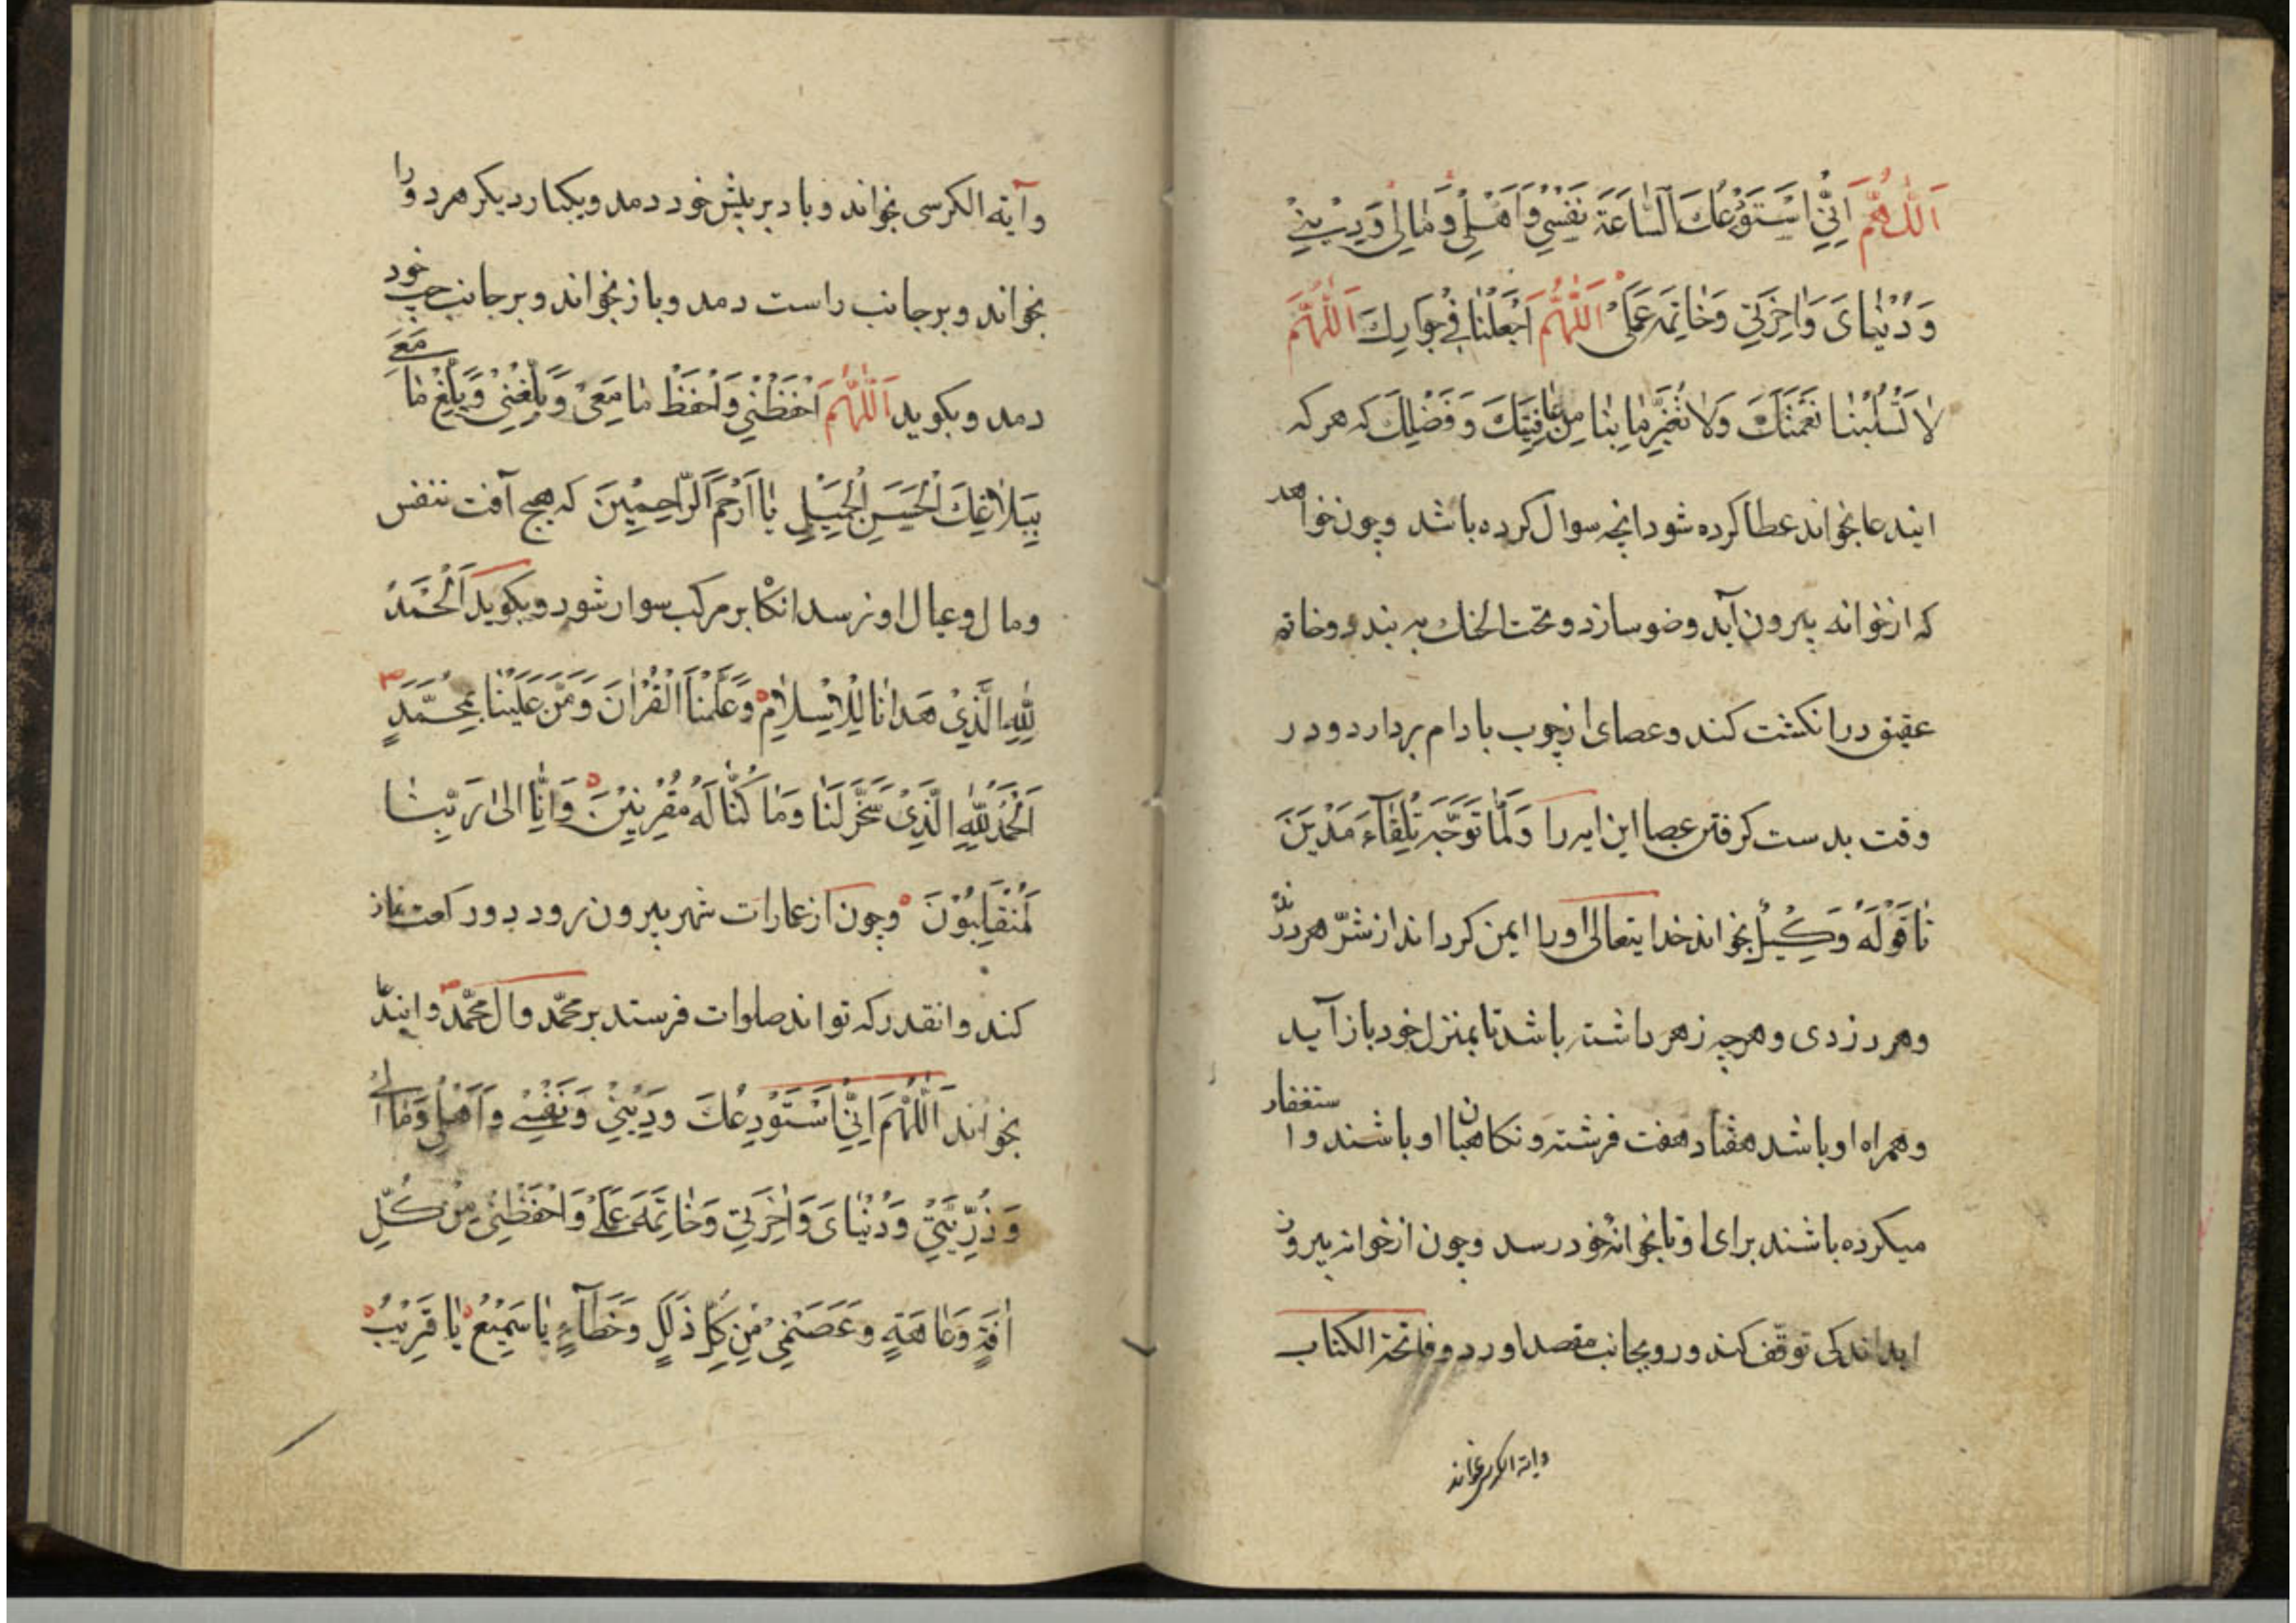 اَللّٰهُمَّ اِنّيِ اَسْتَوْدِعُكَ اَلسّٰاعَةَ نَفْسِي وَاَهْلِي وَمٰالِي وَدِيْنِي
وَدُنْيٰاىَ وَاٰخِرَتِي وَخٰاتِمَةَ عَمَلِى اَللّٰهُمَّ اَجْعَلْنٰا فِي جِوٰارِكَ اَللّٰهُمَّ
لاٰ تَسْلُبْنٰا نِعْمَتَكَ وَلاٰ تُغَيِّرْ مٰا بِنٰا مِنْ عٰافِيَتِكَ وَفَضْلِكَ كه هر كه
ایندعا بخواند عطا كرده شود انچه سوال كرده باشد وچون خواهد
كه از خوانه بیرون آید وضو سازد و تحت الحنك به بندد وخاتم
عقیق در انكشت كند وعصای از چوب بادام بردارد ودر
وقت بدست كرفتن عصا این ایه را وَلَمّٰا تَوَجَّهَ تِلْقٰآءَ مَدْيَنَ
تٰا قَوْلَهُ وَكِيْلٌ بخواند خدایتعالی اورا ایمن كرداند از شرّ هر درنده
وهر دزدی وهرچه زهر داشته باشد تا بمنزل خود باز آید
وهمراه او باشد هفتاد هفت فرشته ونكاهبان او باشند واستغفار
میكرده باشند برای او تا بخوانهٔ خود رسد وچون از خوانه بیرون
اید اندكی توقّف كند ورو بجانب مقصد اورد وفاتحة الكتاب
وایة الكرسی بخواند
وآیته الكرسی بخواند وباد بر پیش خود دمد ویكبار دیكر هر دو را
بخواند وبر جانب راست دمد وباز بخواند وبر جانب چپ خود
دمد وبكوید اَللّٰهُمَّ اَحْفَظْنِي وَاَحْفَظْ مٰا مَعِيْ وَبَلِّغْنِيْ وَبَلِّغْ مٰا مَعِي
بِبَلاٰغِكَ الْحَسَنِ الْجَمِيْلِ يٰا اَرْحَمَ الرّٰاحِمِيْنَ كه هیچ آفت بنفس
ومال وعیال او نرسد انكاه بر مركب سوار شود وبكوید اَلْحَمْدُ
لِلّٰهِ الَّذِيْ هَدٰانٰا لِلْاِسْلاٰمِ وَعَلَّمَنَا الْقُرْاٰنَ وَمَنَّ عَلَيْنٰا بِمُحَمَّدٍ
اَلْحَمْدُ لِلّٰهِ الَّذِيْ سَخَّرَ لَنٰا وَمٰا كُنّٰا لَهُ مُقْرِنِيْنَ وَاِنّٰا اِلىٰ رَبِّنٰا
لَمُنْقَلِبُوْنَ وچون از عمارات شهر بیرون رود دو ركعت نماز
كند وانقدر كه تواند صلوات فرستد بر محمّد وال محمّد وایندعا
بخواند اَللّٰهُمَ اِنّيِ اَسْتَوْدِعُكَ وَدِيْنِيْ وَنَفْسِيْ وَاَهْلِي وَمٰالِي
وَذُرِّيَّتِيْ وَدُنْيٰاىَ وَاٰخِرَتِي وَخٰاتِمَةَ عَمَلِيْ وَاحْفَظْنِيْ مِنْ كُلِّ
اٰفَةٍ وَعٰاهَةٍ وَعَصَمَنِيْ مِنْ كُلِّ ذَلَلٍ وَخَطَآءٍ يٰا سَمِيْعُ يٰا قَرِيْبُ